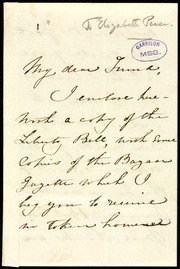 1
To Elizabeth Pease.
GARRISON
MSS.
My dear Friend,
I enclose here-
with a copy of the
Liberty Bell, with some
Copies of the Bazaar
Gazette which I
beg you to receive
in token however